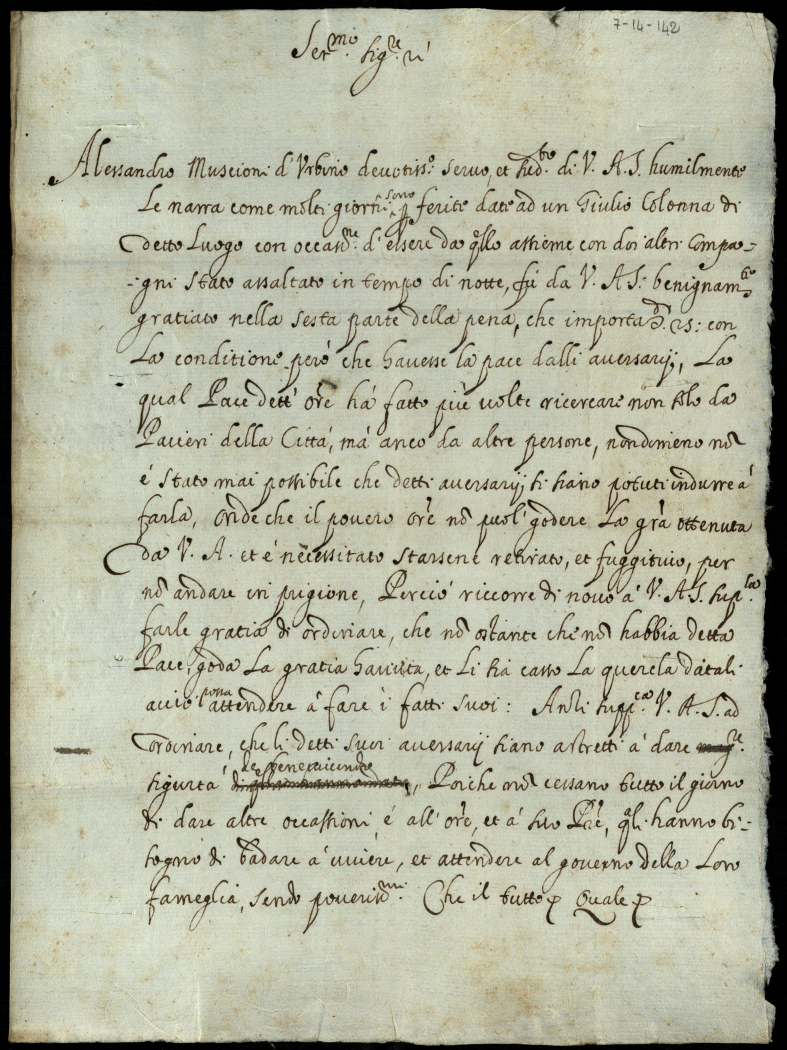 7-14-142
Ser.mo Sig.re
Alessandro Muscioni d'Urbino devotiss.o servo, et sud.to di V. A. S. humilmente
Le narra come molti giorni sono p ferite date ad un Giulio Colonna di
detto Luogo con occas.ne d'essere da qllo assieme con doi altri compa-
-gni stato assaltato in tempo di notte, fu da V. A. S. benignam.te
gratiato nella sesta parte della pena, che importa 25: con
La conditione però che havesse la pace dalli aversarij, La
qual Pace dett' ore há fatto più volte ricercare non solo da
Pacieri della Cittá, má anco da altre persone, nondimeno nō
é stato mai possibile che detti aversarij si siano potuti indurre á
farla, onde che il povero ore nō puol' godere La gra ottenuta
da V. A. et é necessitato starsene retirato, et fuggitivo, per
nō andare in prigione, Perció riccorre di novo á V. A. S. sup.la
farle gratia di ordinare, che nō ostante che nō habbia detta
Pace, goda La gratia havuta, et Li sia casso La querela datali
acciò possa attendere á fare i fatti suoi: Anzi supp.ca V. A. S. ad
ordinare, che li detti suoi aversarij siano astretti á dare
sigurtá de bene vivendo, Poiche nō cessano tutto il giorno
di dare altre occassioni, é all' ore, et á suo Pre, qli hanno bi-
sogno di badare á vivere, et attendere al governo della Loro
fameglia, sendo poveriss.mi Che il tutto p Quale p